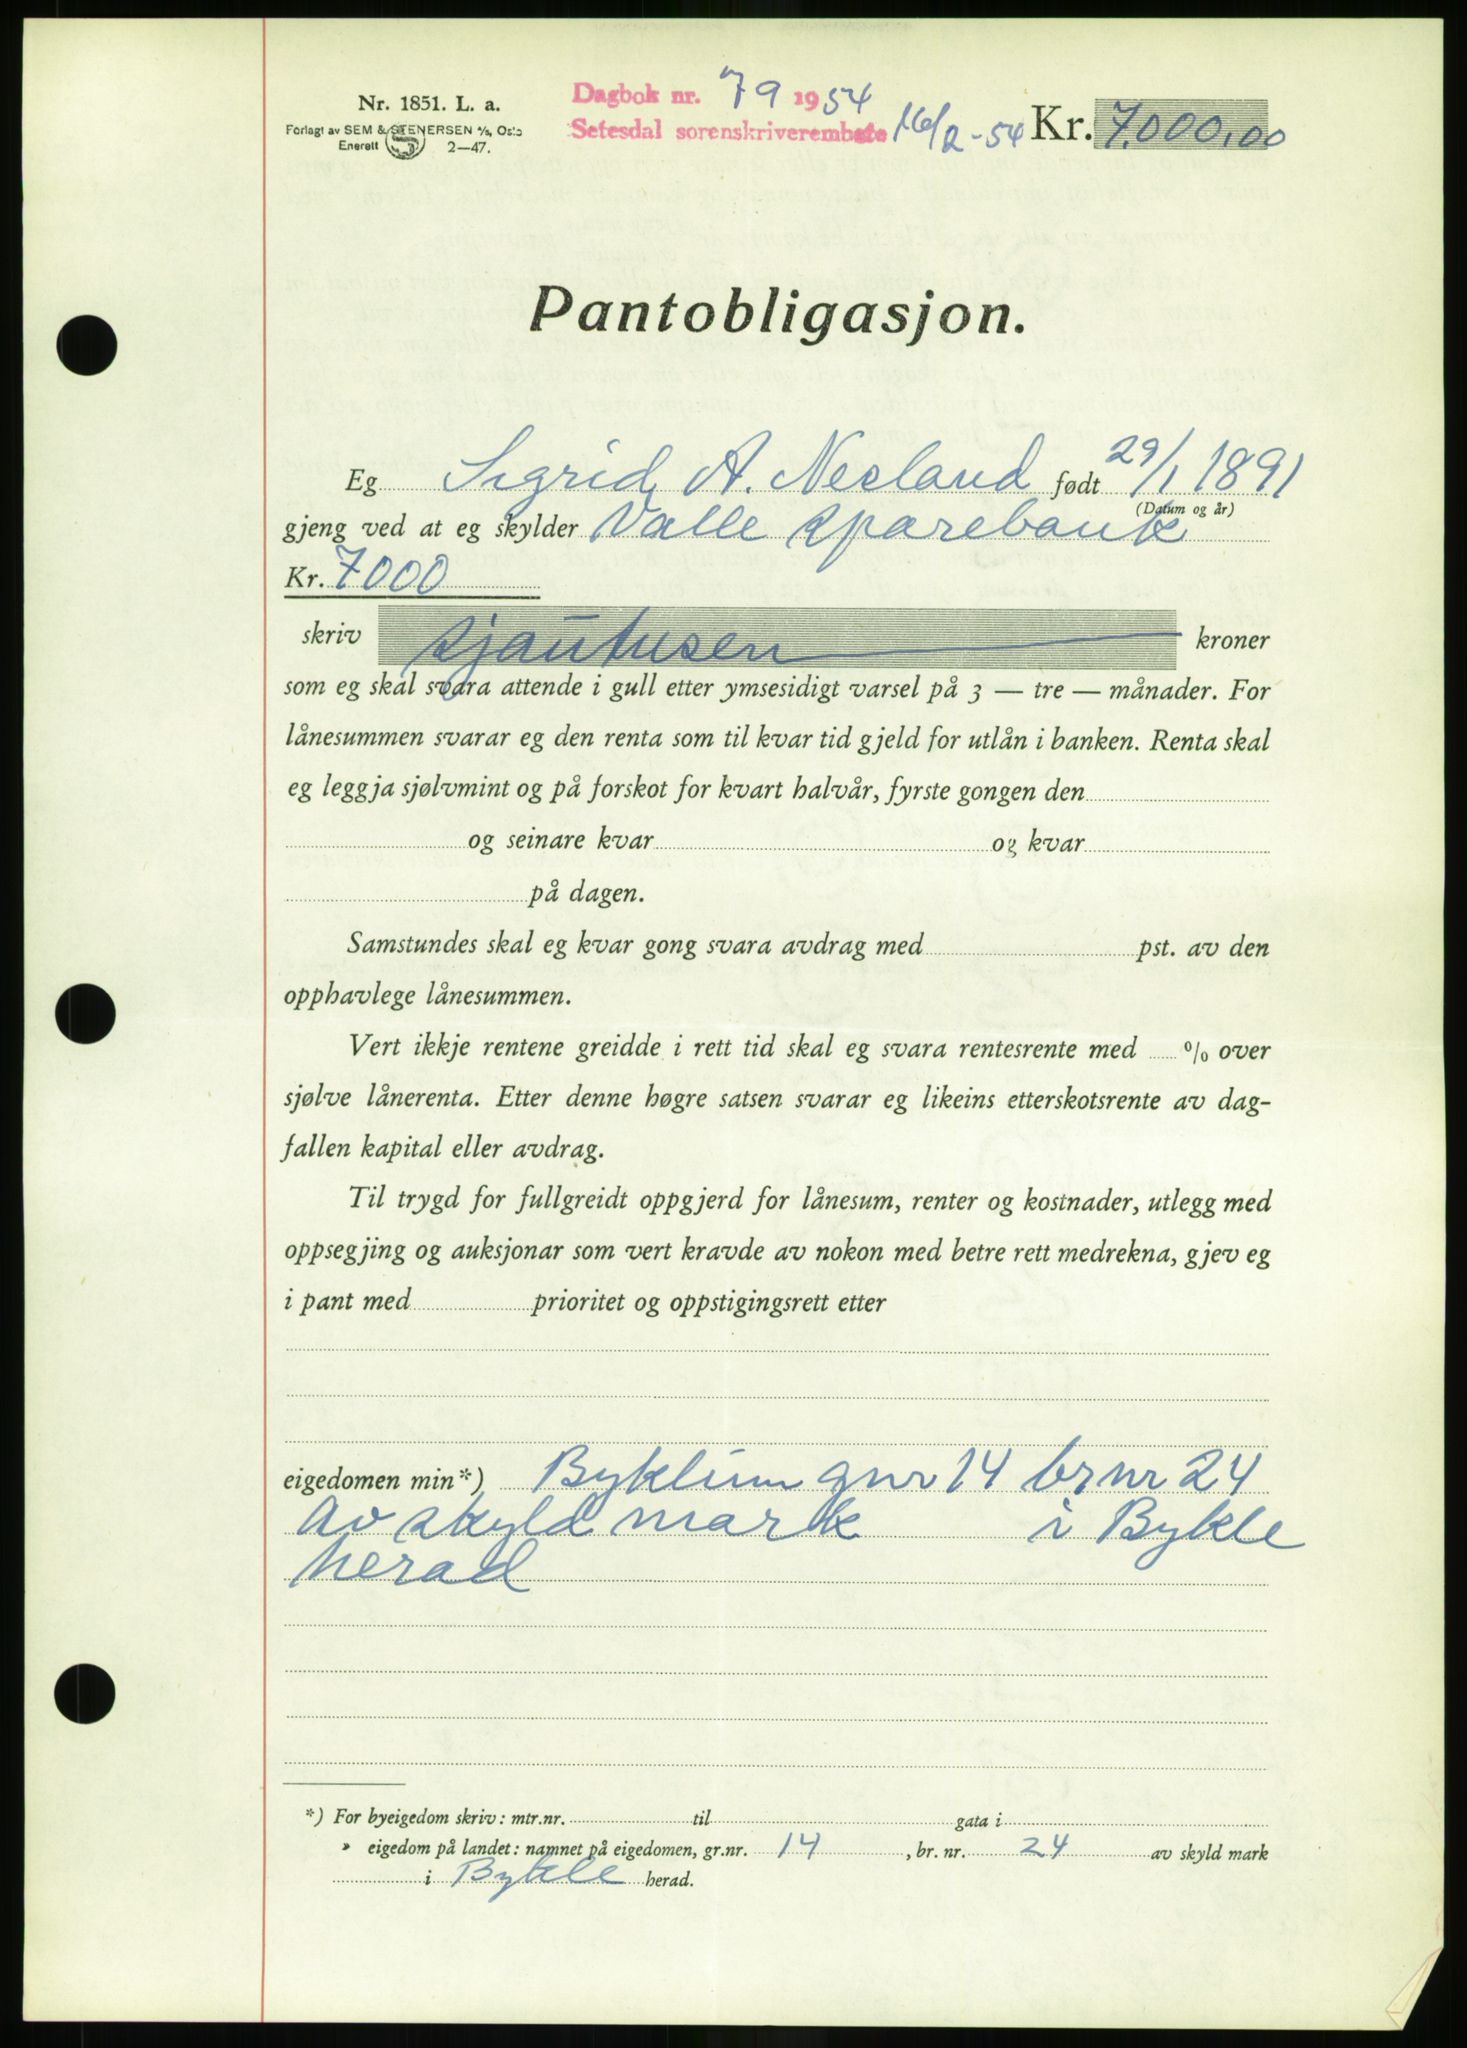 Nr. 1851. L. a.
Forlagt av SEM & STENERSEN A/S, Oslo
Enerett 2—47.
Dagbok nr. 79 1954
Setesdal sorenskriverembete 16/2-54
Kr. 7.000,00
Pantobligasjon.
Eg Sigrid A. Nesland født 29/1 1891
(Datum og år)
gjeng ved at eg skylder Valle Sparebank
Kr. 7000
skriv sjautusen kroner
som eg skal svara attende i gull etter ymsesidigt varsel på 3 — tre — månader. For
lånesummen svarar eg den renta som til kvar tid gjeld for utlån i banken. Renta skal
eg leggja sjølvmint og på forskot for kvart halvår, fyrste gongen den
og seinare kvar og kvar
på dagen.
Samstundes skal eg kvar gong svara avdrag med pst. av den
opphavlege lånesummen.
Vert ikkje rentene greidde i rett tid skal eg svara rentesrente med % over
sjølve lånerenta. Etter denne høgre satsen svarar eg likeins etterskotsrente av dag-
fallen kapital eller avdrag.
Til trygd for fullgreidt oppgjerd for lånesum, renter og kostnader, utlegg med
oppsegjing og auksjonar som vert kravde av nokon med betre rett medrekna, gjev eg
i pant med prioritet og oppstigingsrett etter
eigedomen min*) Byklum gnr 14 brnr 24
av skyld mark i Bykle
herad
*) For byeigedom skriv: mtr.nr. til gata i
» eigedom på landet: namnet på eigedomen, gr.nr. 14, br. nr. 24 av skyld mark
i Bykle herad.